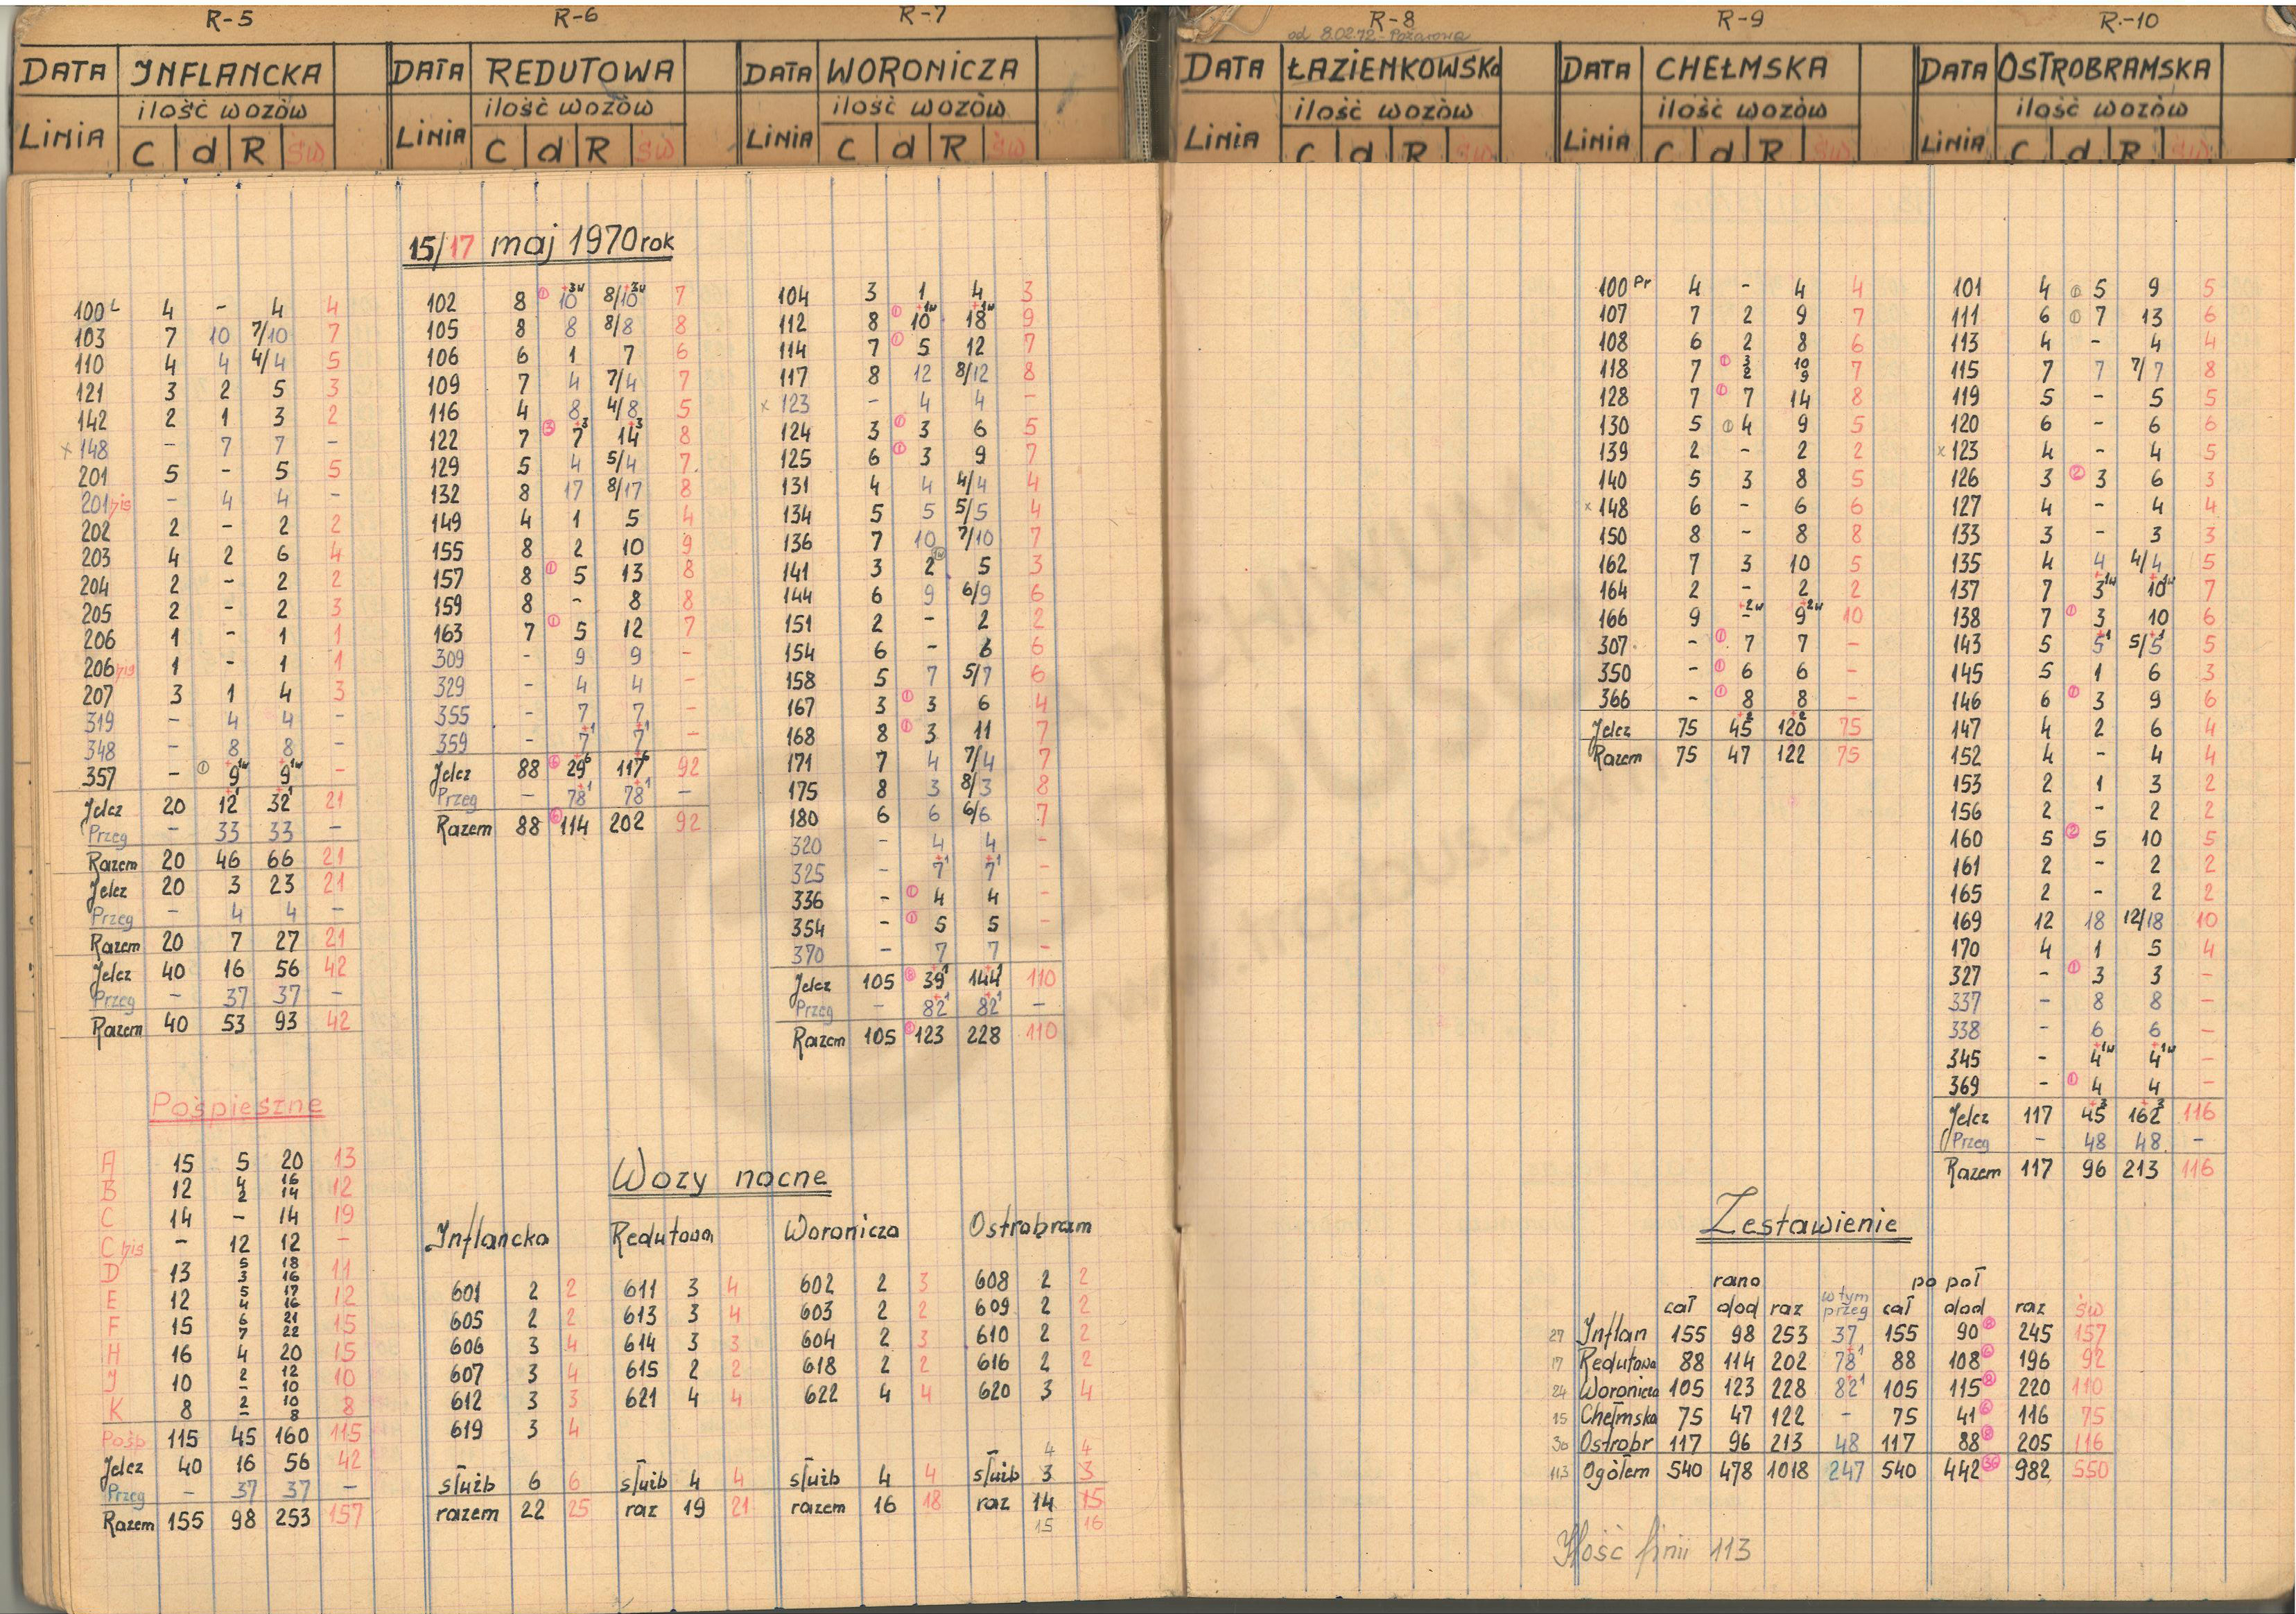 R-5
DATA INFLANCKA
ilość wozów
LINIA C d R św
R-6
DATA REDUTOWA
ilość wozów
LINIA C d R św
R-7
DATA WORONICZA
ilość wozów
LINIA C d R św
R-8
od 8.02.72 - Pożarowa
DATA ŁAZIENKOWSKA
ilość wozów
LINIA C d R św
R-9
DATA CHEŁMSKA
ilość wozów
LINIA C d R św
R.-10
DATA OSTROBRAMSKA
ilość wozów
LINIA C d R św
15/17 maj 1970 rok
100 L 4 - 4 4
103 7 10 7/10 7
110 4 4 4/4 5
121 3 2 5 3
142 2 1 3 2
x 148 - 7 7 -
201 5 - 5 5
201 bis - 4 4 -
202 2 - 2 2
203 4 2 6 4
204 2 - 2 2
205 2 - 2 3
206 1 - 1 1
206 bis 1 - 1 1
207 3 1 4 3
319 - 4 4 -
348 - 8 8 -
357 - ① 9 +1w 9 +1w -
Jelcz 20 12 +1 32 +1 21
Przeg - 33 33 -
Razem 20 46 66 21
Jelcz 20 3 23 21
Przeg - 4 4 -
Razem 20 7 27 21
Jelcz 40 16 56 42
Przeg - 37 37 -
Razem 40 53 93 42
Pośpieszne
A 15 5 20 13
B 12 4/2 16/14 12
C 14 - 14 19
C bis - 12 12 -
D 13 5/3 18/16 11
E 12 5/4 17/16 12
F 15 6/7 21/22 15
H 16 4 20 15
J 10 2/- 12/10 10
K 8 2/- 10/8 8
Pośp 115 45 160 115
Jelcz 40 16 56 42
Przeg - 37 37 -
Razem 155 98 253 157
102 8 ① 10 +3w 8/10 +3w 7
105 8 8 8/8 8
106 6 1 7 6
109 7 4 7/4 7
116 4 8 4/8 5
122 7 ③ 7 +3 14 +3 8
129 5 4 5/4 7
132 8 17 8/17 8
149 4 1 5 4
155 8 2 10 9
157 8 ① 5 13 8
159 8 - 8 8
163 7 ① 5 12 7
309 - 9 9 -
329 - 4 4 -
355 - 7 7 -
359 - 7 +1 7 +1 -
Jelcz 88 ⑥ 29 +6 117 +6 92
Przeg - 78 +1 78 +1 -
Razem 88 ⑥ 114 202 92
104 3 1 4 3
112 8 ① 10 +1w 18 +1w 9
114 7 ① 5 12 7
117 8 12 8/12 8
x 123 - 4 4 -
124 3 ① 3 6 5
125 6 ① 3 9 7
131 4 4 4/4 4
134 5 5 5/5 4
136 7 10 7/10 7
141 3 2 1w 5 3
144 6 9 6/9 6
151 2 - 2 2
154 6 - 6 6
158 5 7 5/7 6
167 3 ① 3 6 4
168 8 ① 3 11 7
171 7 4 7/4 7
175 8 3 8/3 8
180 6 6 6/6 7
320 - 4 4 -
325 - 7 +1 7 +1 -
336 - ① 4 4 -
354 - ① 5 5 -
370 - 7 7 -
Jelcz 105 ⑧ 39 +1 144 +1 110
Przeg - 82 +1 82 +1 -
Razem 105 ⑧ 123 228 110
Wozy nocne
Inflancka Redutowa Woronicza Ostrobram
601 2 2 611 3 4 602 2 3 608 2 2
605 2 2 613 3 4 603 2 2 609 2 2
606 3 4 614 3 3 604 2 3 610 2 2
607 3 4 615 2 2 618 2 2 616 2 2
612 3 3 621 4 4 622 4 4 620 3 4
619 3 4
4 4
służb 6 6 służb 4 4 służb 4 4 służb 3 3
razem 22 25 raz 19 21 razem 16 18 raz 14 15
15 16
100 Pr 4 - 4 4
107 7 2 9 7
108 6 2 8 6
118 7 ① 3/2 10/9 7
128 7 ① 7 14 8
130 5 ① 4 9 5
139 2 - 2 2
140 5 3 8 5
x 148 6 - 6 6
150 8 - 8 8
162 7 3 10 5
164 2 - 2 2
166 9 - +2w 9 +2w 10
307 - ① 7 7 -
350 - ① 6 6 -
366 - ① 8 8 -
Jelcz 75 45 +2 120 +2 75
Razem 75 47 122 75
101 4 ① 5 9 5
111 6 ① 7 13 6
113 4 - 4 4
115 7 7 7/7 8
119 5 - 5 5
120 6 - 6 6
x 123 4 - 4 5
126 3 ② 3 6 3
127 4 - 4 4
133 3 - 3 3
135 4 4 4/4 5
137 7 3 +1w 10 +1w 7
138 7 ① 3 10 6
143 5 5 +1 5/5 +1 5
145 5 1 6 3
146 6 ① 3 9 6
147 4 2 6 4
152 4 - 4 4
153 2 1 3 2
156 2 - 2 2
160 5 ② 5 10 5
161 2 - 2 2
165 2 - 2 2
169 12 18 12/18 10
170 4 1 5 4
327 - ① 3 3 -
337 - 8 8 -
338 - 6 6 -
345 - 4 +1w 4 +1w -
369 - ① 4 4 -
Jelcz 117 45 +3 162 +3 116
Przeg - 48 48 -
Razem 117 96 213 116
Zestawienie
rano po poł
cał dod raz w tym przeg cał dod raz św
27 Inflan 155 98 253 37 155 90 ⑧ 245 157
17 Redutowa 88 114 202 78 +1 88 108 ⑥ 196 92
24 Woronicza 105 123 228 82 +1 105 115 ⑧ 220 110
15 Chełmska 75 47 122 - 75 41 ⑥ 116 75
30 Ostrobr 117 96 213 48 117 88 ⑧ 205 116
113 Ogółem 540 478 1018 247 540 442 ㊱ 982 550
Ilość linii 113